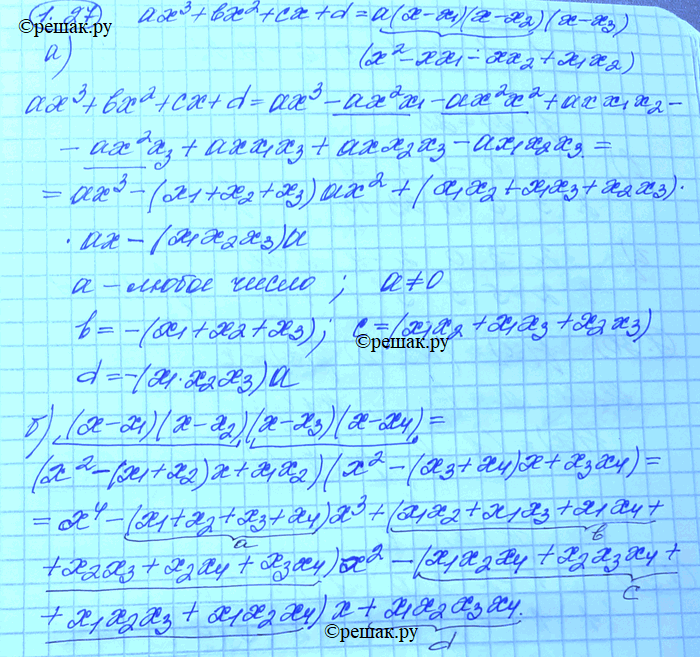 1.97 ax³+bx²+cx+d=a(x-x₁)(x-x₂)(x-x₃)
©решак.ру
а) (x²-xx₁-xx₂+x₁x₂)
ax³+bx²+cx+d=ax³-ax²x₁-ax²x²+axx₁x₂-
-ax²x₃+axx₁x₃+axx₂x₃-ax₁x₂x₃=
=ax³-(x₁+x₂+x₃)ax²+(x₁x₂+x₁x₃+x₂x₃)·
·ax-(x₁x₂x₃)a
a-любое число; a≠0
b=-(x₁+x₂+x₃); c=(x₁x₂+x₁x₃+x₂x₃)
©решак.ру
d=-(x₁·x₂x₃)a
б) (x-x₁)(x-x₂)(x-x₃)(x-x₄)=
(x²-(x₁+x₂)x+x₁x₂)(x²-(x₃+x₄)x+x₃x₄)=
=x⁴-(x₁+x₂+x₃+x₄)x³+(x₁x₂+x₁x₃+x₁x₄+
a b
+x₂x₃+x₂x₄+x₃x₄)x²-(x₁x₂x₄+x₂x₃x₄+
c
+x₁x₂x₃+x₁x₂x₄)x+x₁x₂x₃x₄.
©решак.ру d